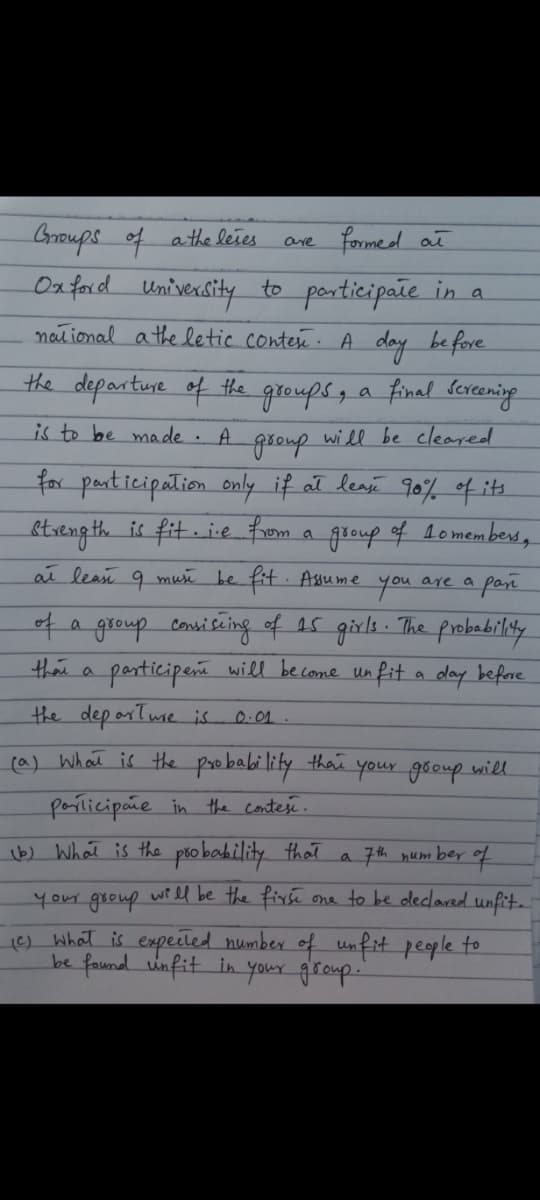 Groups of atheleies are formed at
Oxford university to participate in a
national atheletic contest. A day before
the departure of the groups, a final screening
is to be made. A group will be cleared
for participation only if at least 90% of its
strength is fit. i.e from a group of 10 members,
at least 9 must be fit. Assume you are a part
of a group consisting of 15 girls. The probability
that a participent will become unfit a day before
the departure is 0.01.
(a) What is the probability that your group will
participate in the contest.
(b) What is the probability that a 7th number of
your group will be the first one to be declared unfit.
(c) What is expected number of unfit people to
be found unfit in your group.